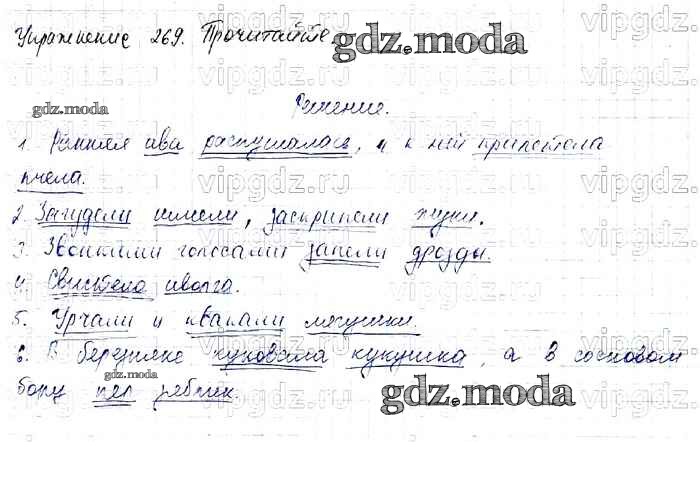 Упражнение 269. Прочитайте.
gdz.moda
gdz.moda
Решение.
1. Ранняя ива распушилась, и к ней прилетела
пчела.
2. Загудели шмели, заскрипели жуки.
3. Звонкими голосами запели дрозды.
4. Свистела иволга.
5. Урчали и квакали лягушки.
6. В березняке куковала кукушка, а в сосновом
бору пел рябчик.
gdz.moda
gdz.moda
vipgdz.ru